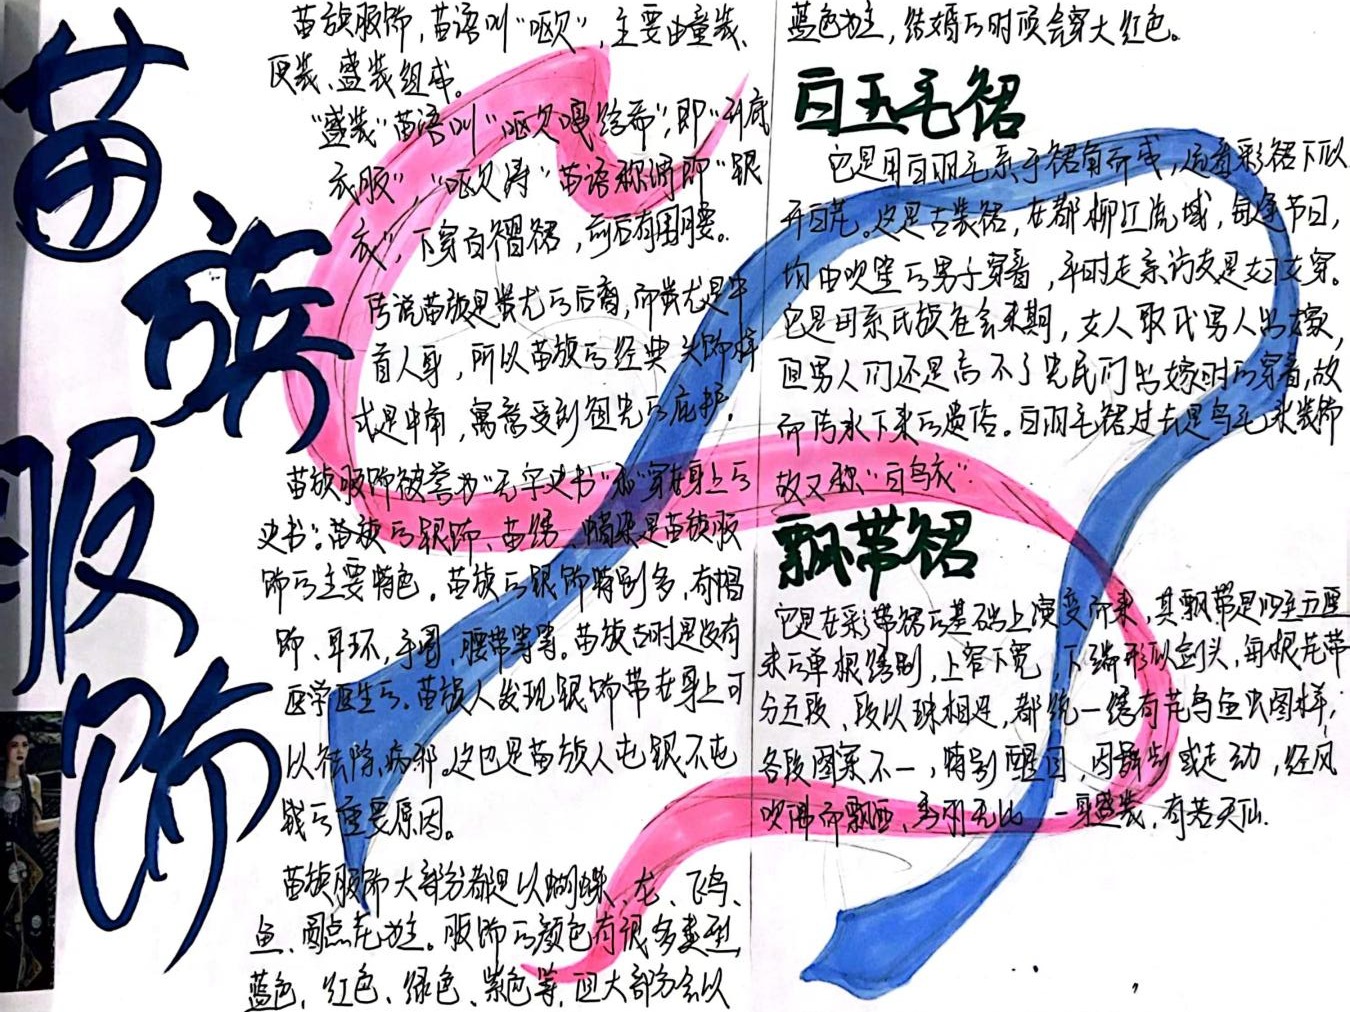 苗族服饰
苗族服饰，苗语叫“呕欠”，主要由童装、
便装、盛装组成。
“盛装”苗语叫“呕欠嘎给希”，即“升底
衣服”，“呕欠涛”苗语称谓即“银
衣”，下穿百褶裙，前后有围腰。
传说苗族是蚩尤的后裔，而蚩尤是牛
首人身，所以苗族的经典头饰样
式是牛角，寓意受到祖先的庇护。
苗族服饰被誉为“无字史书”和“穿在身上的
史书”。苗族的银饰、苗绣、蜡染是苗族服
饰的主要特色。苗族的银饰特别多，有帽
饰、耳环、手镯、腰带等等。苗族古时是没有
医学医生的。苗族人发现银饰带在身上可
以祛除病邪。这也是苗族人屯银不屯
钱的重要原因。
苗族服饰大部分都是以蝴蝶、龙、飞鸟、
鱼、圆点花为主。服饰的颜色有很多类型，
蓝色、红色、绿色、紫色等，但大部分会以
蓝色为主，结婚的时候会穿大红色。
白玉毛裙
它是用白羽毛系于裙角而成，远看彩裙下似
开白花。这是古装裙，在都柳江流域，每逢节日，
均由吹笙的男子穿着，平时走亲访友是女子穿。
它是母系氏族社会末期，女人取代男人出嫁，
但男人们还是离不了先民们出嫁时的穿着，故
而传承下来的遗俗。白羽毛裙过去是鸟毛来装饰
故又称“百鸟衣”
飘带裙
它是在彩带裙的基础上演变而来，其飘带是
的单根绣制，上窄下宽，下端形似剑头，每根花带
分五段、段以珠相连，都统一绣有花鸟鱼虫图样，
各段图案不一，特别醒目，因舞步或走动，经风
吹拂而飘洒，秀丽无比，一穿盛装，有若天仙.